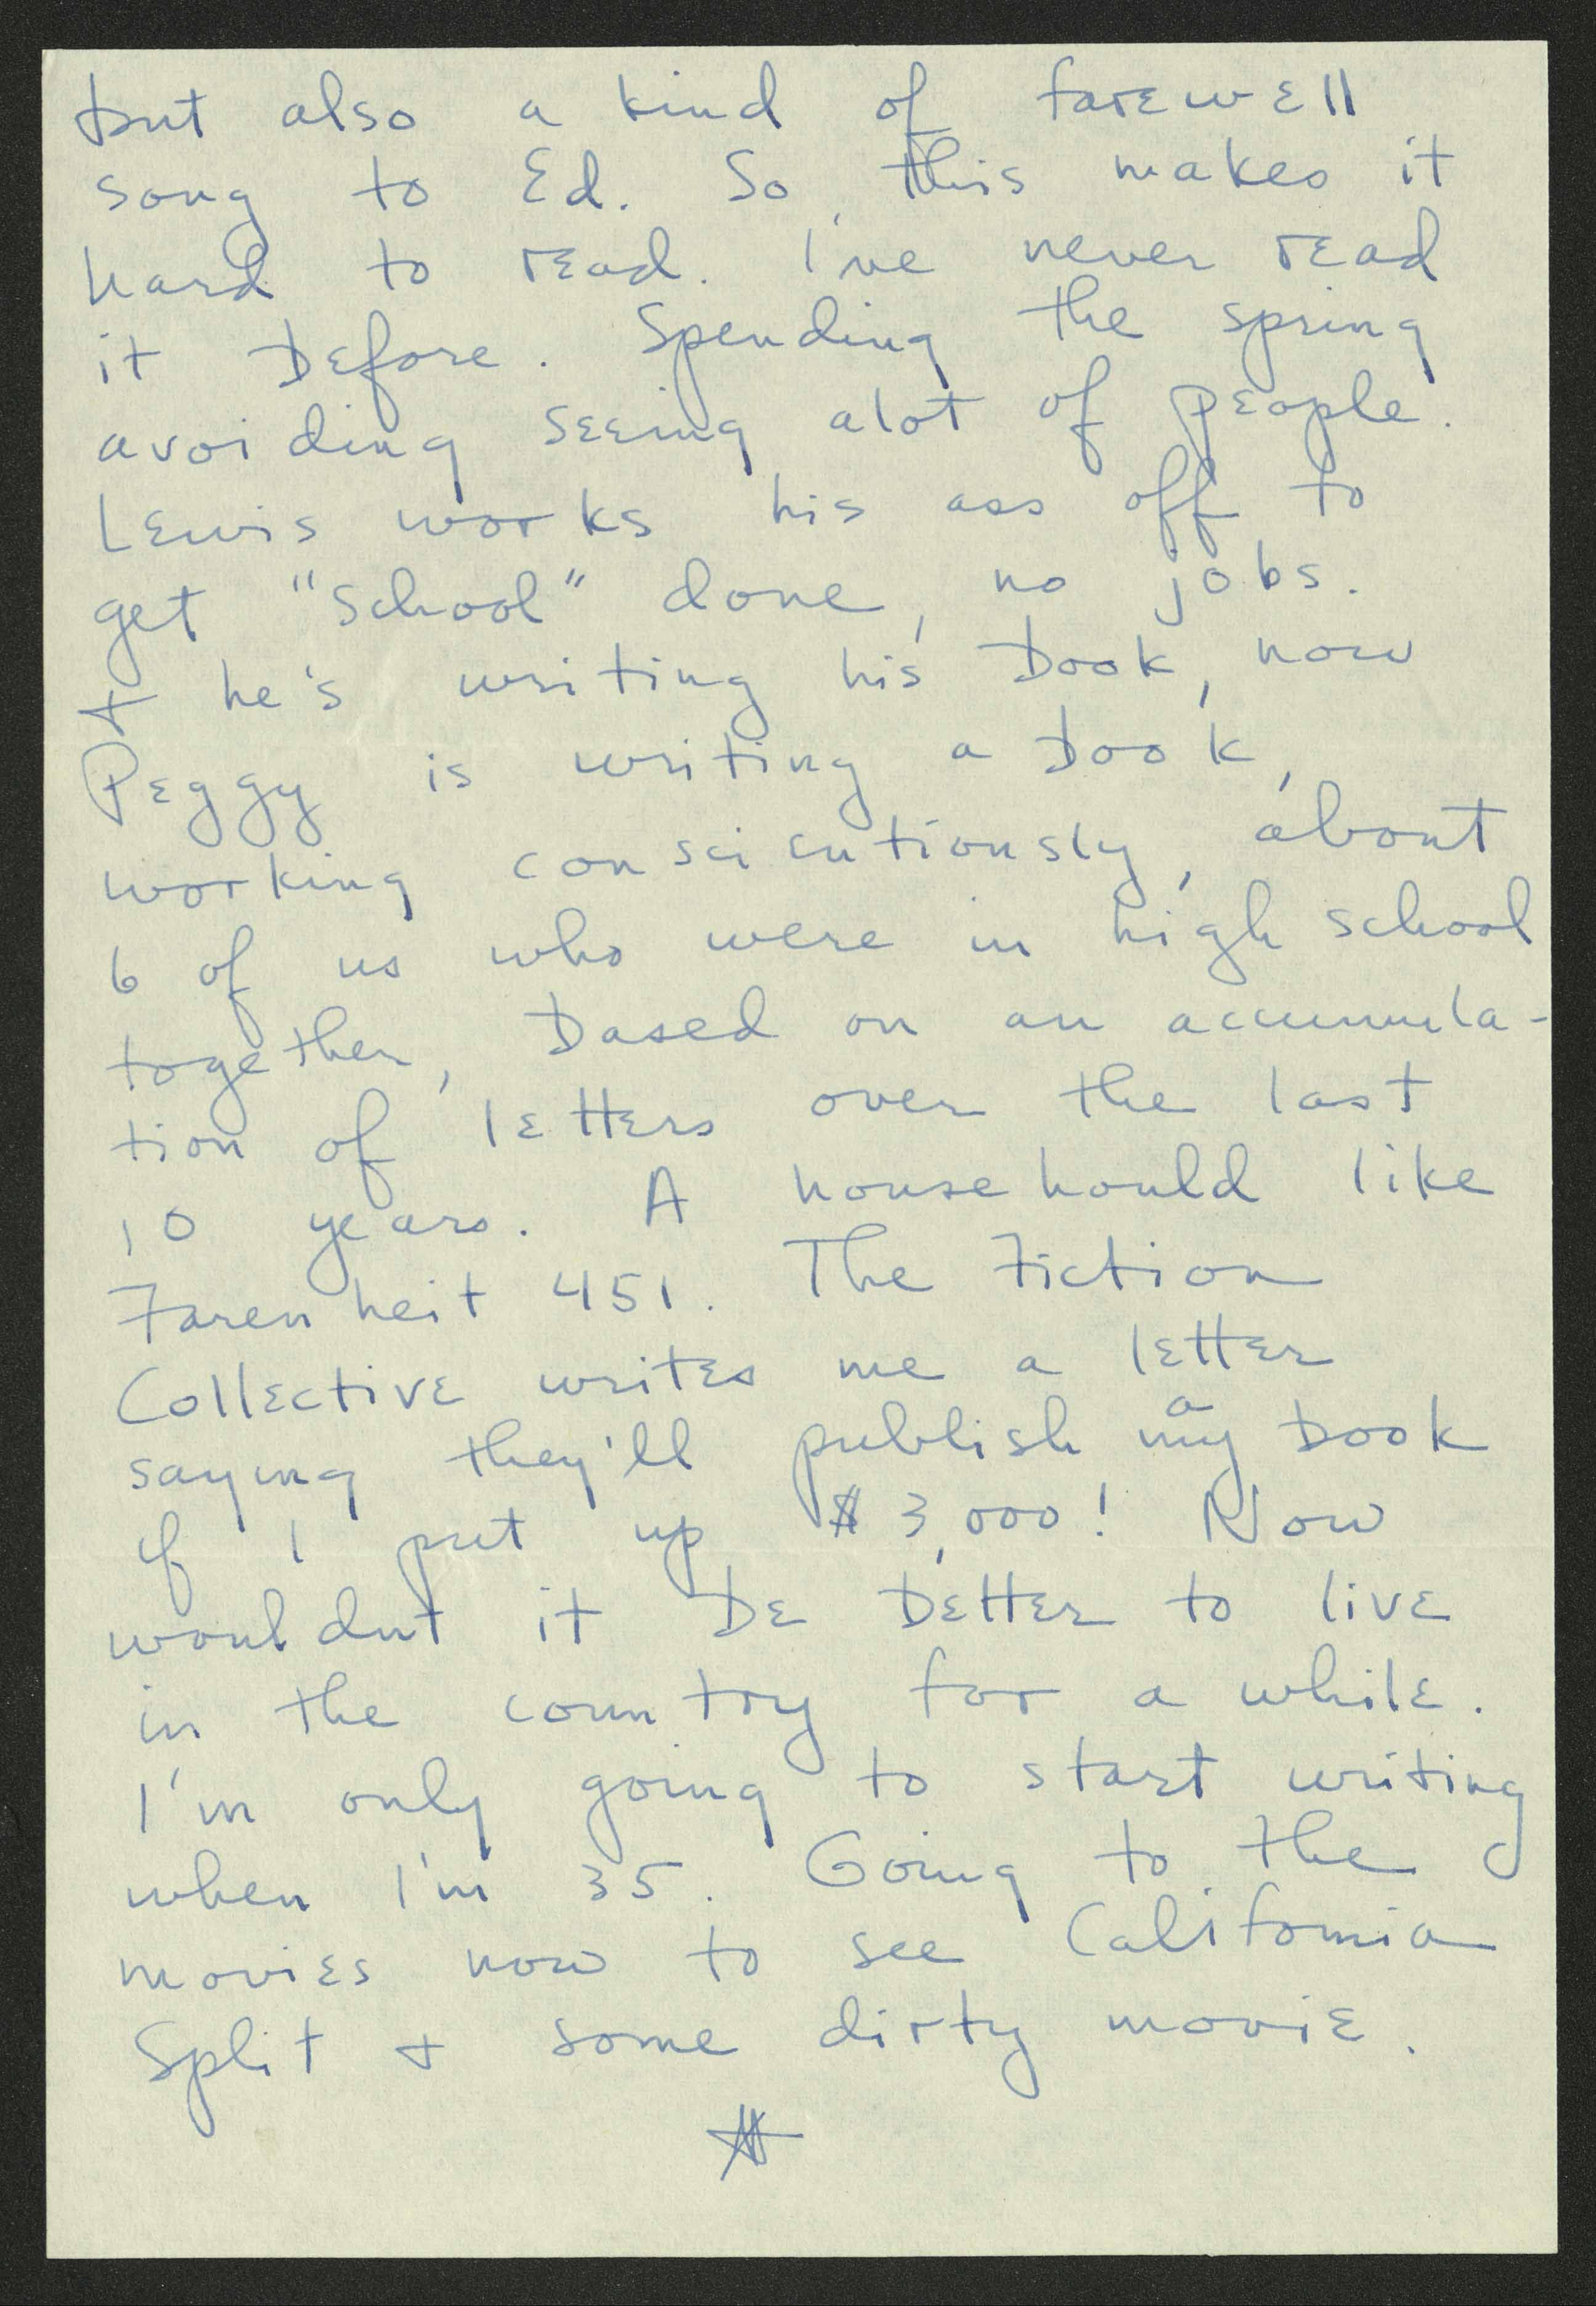 but also a kind of farewell
song to Ed. So, this makes it
hard to read. I've never read
it before. Spending the spring
avoiding seeing alot of people.
Lewis works his ass off to
get "school" done, no jobs.
+ he's writing his book, now
Peggy is writing a book,
working conscientiously, about
6 of us who were in high school
together, based on an accumula-
tion of letters over the last
10 years. A househould like
Farenheit 451. The Fiction
Collective writes me a letter
saying they'll publish my a book
if I put up $3,000! Now
wouldnt it be better to live
in the country for a while.
I'm only going to start writing
when I'm 35. Going to the
movies now to see California
Split + some dirty movie.